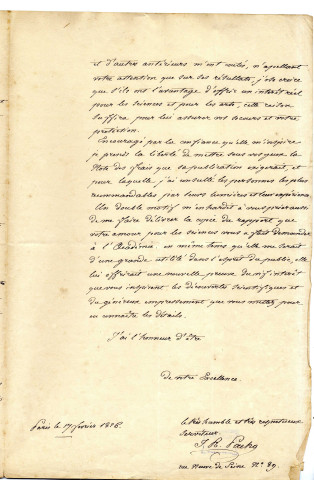 et d'autre antérieurs m'ont coûté, n'appellant
votre attention que sur ses résultats, j'ose croire
que s'ils ont l'avantage d'offrir un intérêt réel
pour les sciences et pour les arts, cette raison
suffira pour leur assurer vos secours et votre
protection.
Encouragé par la confiance qu'elle m'inspire
je prends la liberté de mettre sous vos yeux la
Note des frais que sa publication exigerait, et
pour laquelle, j'ai consulté les personnes les plus
recommandables par leurs lumières et leur expérience
Un double motif m'enhardit à vous prier
de me faire délivrer la copie du rapport que
votre amour pour les sciences vous a fait demander
à l'Académie. en même tems qu'elle me serait
d'une grande utilité dans l'esprit du public, elle
lui offrirait une nouvelle preuve du vif intérêt
que vous inspirent les découvertes scientifiques et
du généreux empressement que vous mettez pour
en connaître les détails.
J'ai l'honneur d'être
de votre Excellence.
le très humble et très respectueux
Serviteur.
Paris le 17 février 1826.
J. R. Pacho
rue Neuve de Seine N.º 89.